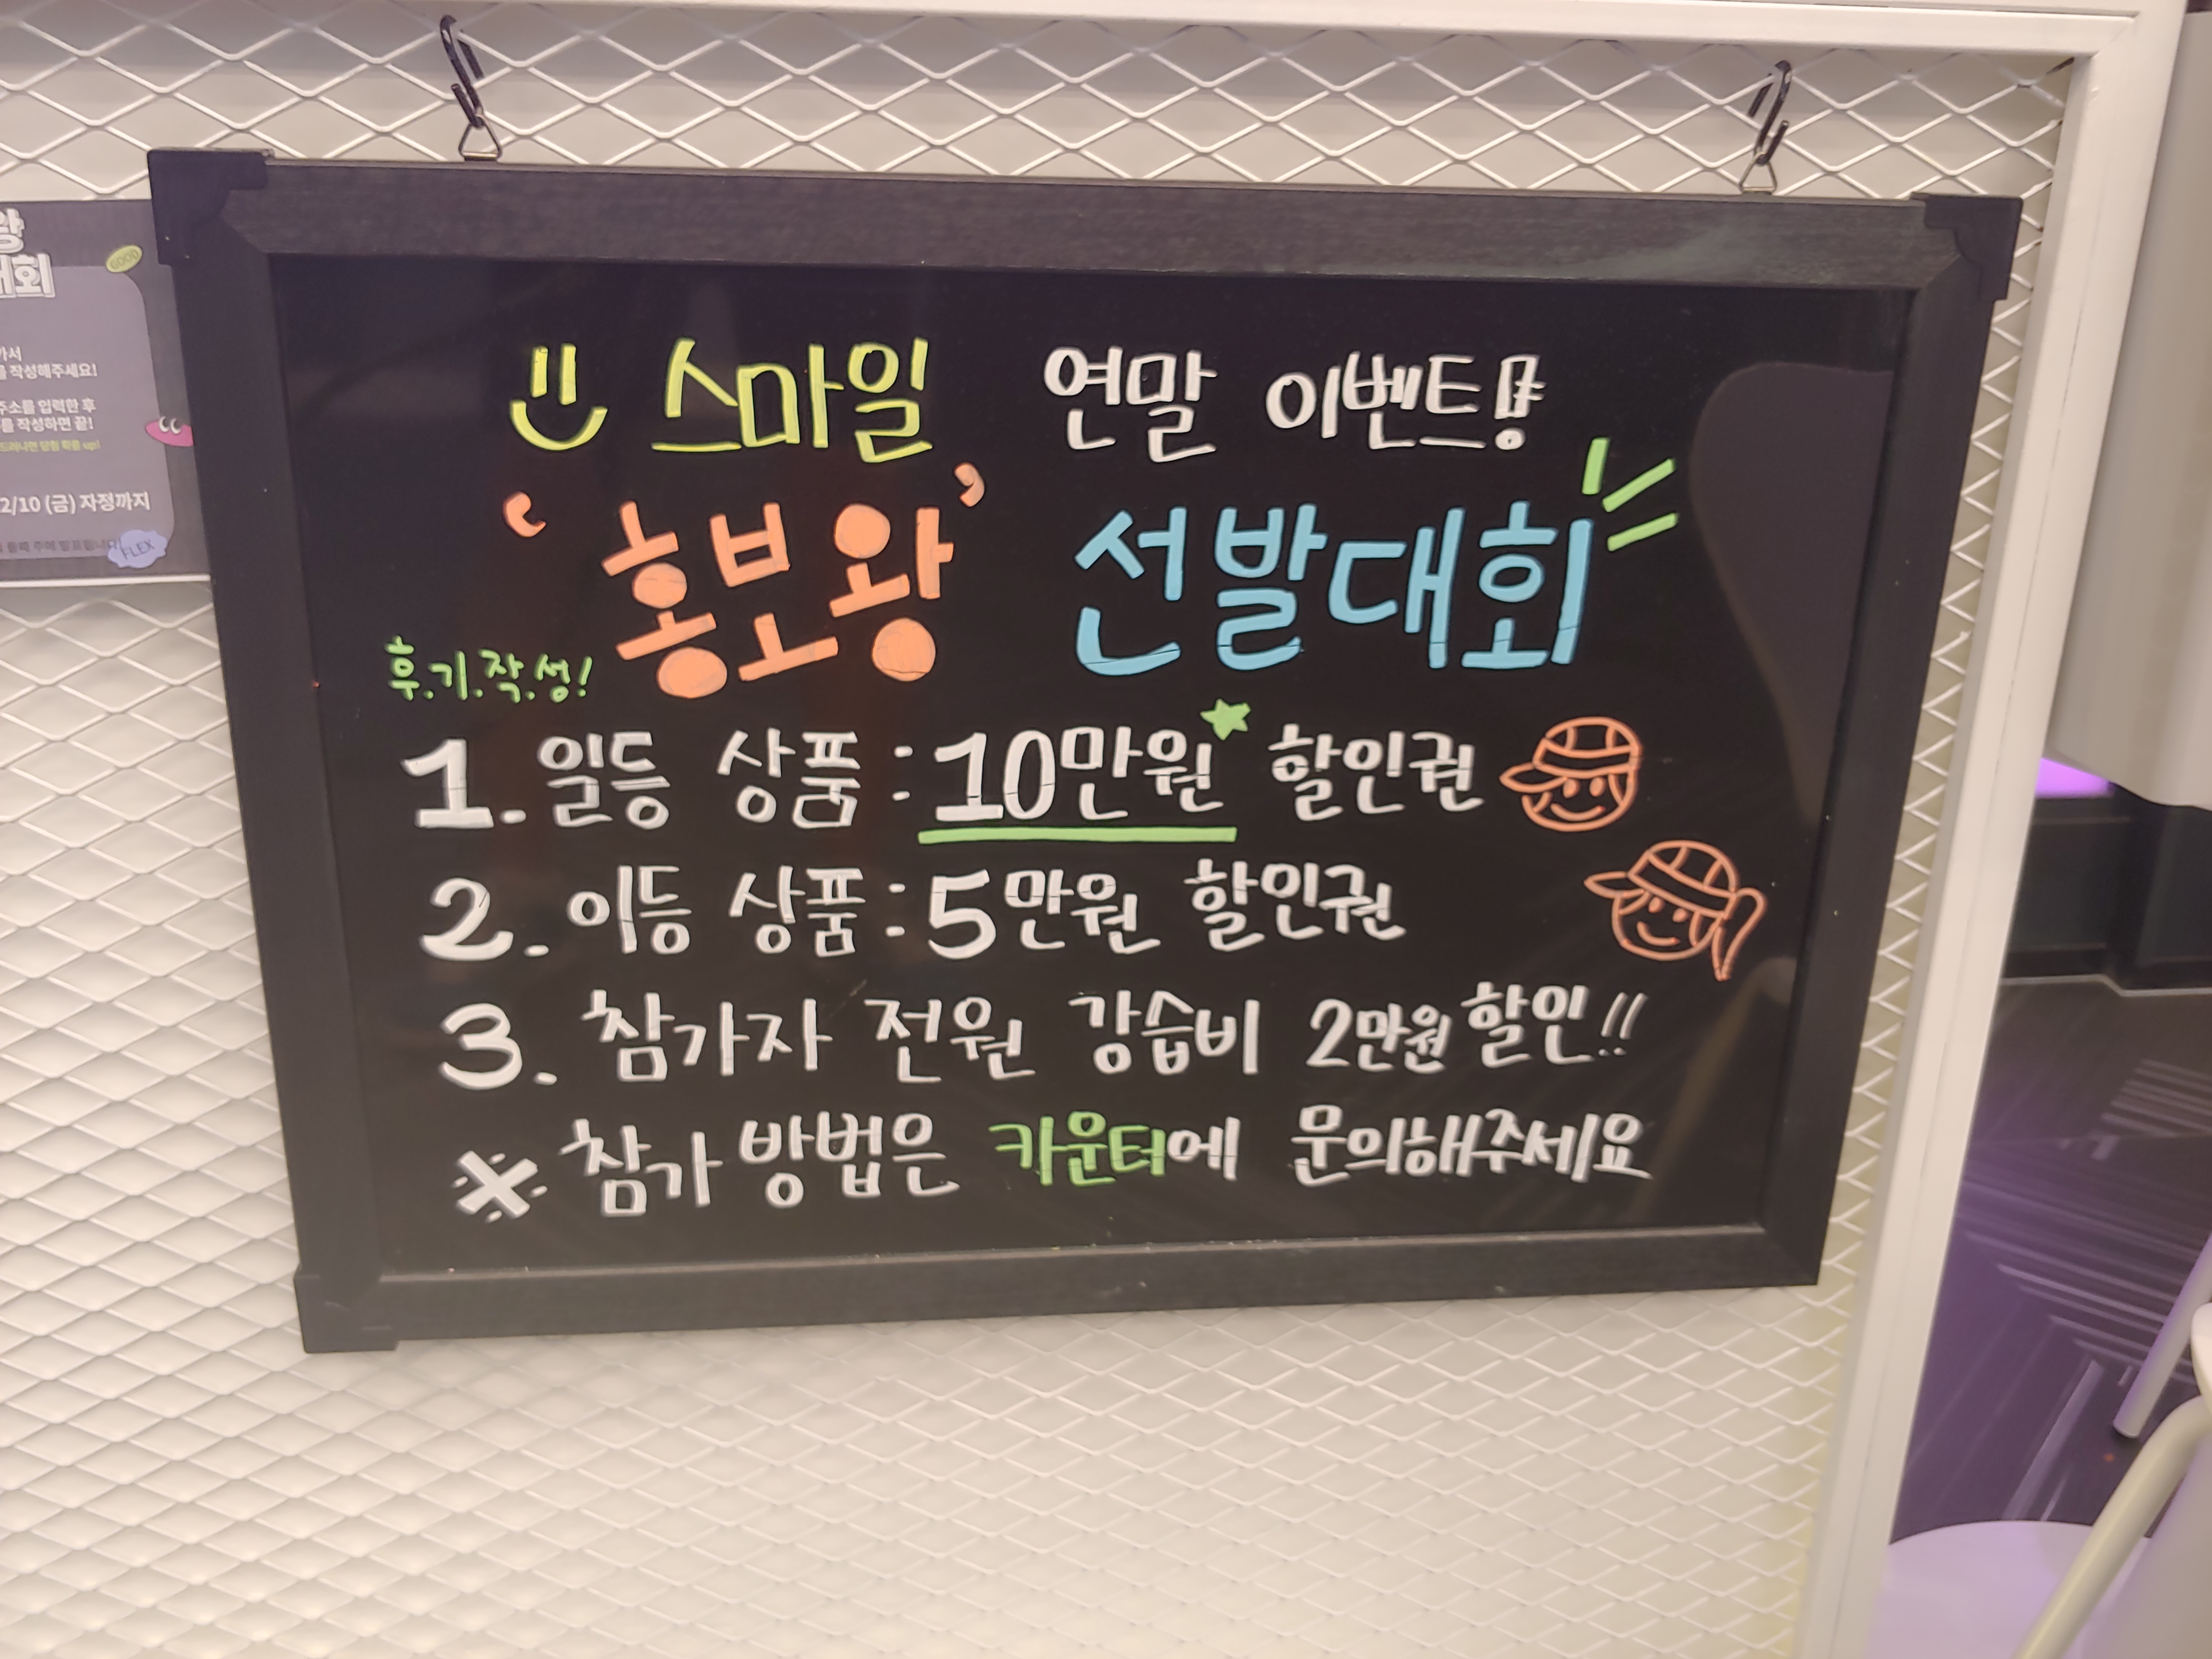 왕
대회
GOOD
가서
를 작성해주세요!
주소를 입력한 후
를 작성하면 끝!
드러나면 당첨 확률 up!
2/10 (금) 자정까지
둘째 주에 발표됩니다
FLEX
스마일 연말 이벤트!
'홍보왕' 선발대회
후.기.작.성!
1. 일등 상품 : 10만원 할인권
2. 이등 상품 : 5만원 할인권
3. 참가자 전원 강습비 2만원 할인!!
※ 참가 방법은 카운터에 문의해주세요